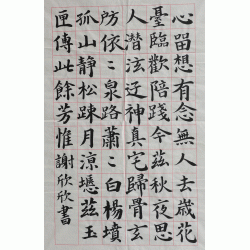 心留想有念無人去歲花
臺臨歡陪踐今茲秋夜思
人潛泫迓神真宅歸骨玄
房依〻泉路蕭〻白楊墳
孤山靜松疎月涼茲玉
匣傳此餘芳惟 謝欣欣書